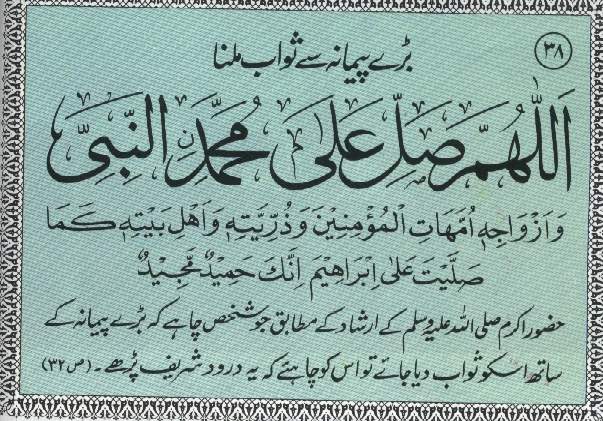 ۳۸
بڑے پیمانہ سے ثواب ملنا
اَللّٰهُمَّ صَلِّ عَلٰى مُحَمَّدِ نِ النَّبِيِّ
وَاَزْوَاجِهٖ اُمَّهَاتِ الْمُؤْمِنِيْنَ وَذُرِّيَّتِهٖ وَاَهْلِ بَيْتِهٖ كَمَا
صَلَّيْتَ عَلٰى اِبْرَاهِيْمَ اِنَّكَ حَمِيْدٌ مَّجِيْدٌ
حضور اکرم صلی اللہ علیہ وسلم کے ارشاد کے مطابق جو شخص چاہے کہ بڑے پیمانہ کے
ساتھ اسکو ثواب دیا جائے تو اس کو چاہئے کہ یہ درود شریف پڑھے ۔ (ص ۳۲)